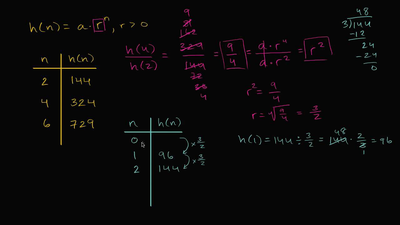 h(n) = a·rⁿ, r > 0
n h(n)
2 144
4 324
6 729
h(4)/h(2) = 324/144 = 9/4 = a·r⁴/a·r² = r²
r² = 9/4
r = √9/4 = 3/2
48
3)144
-12
24
-24
0
n h(n)
0
1 96
2 144
× 3/2
× 3/2
h(1) = 144 ÷ 3/2 = 144 · 2/3 = 96
48
1